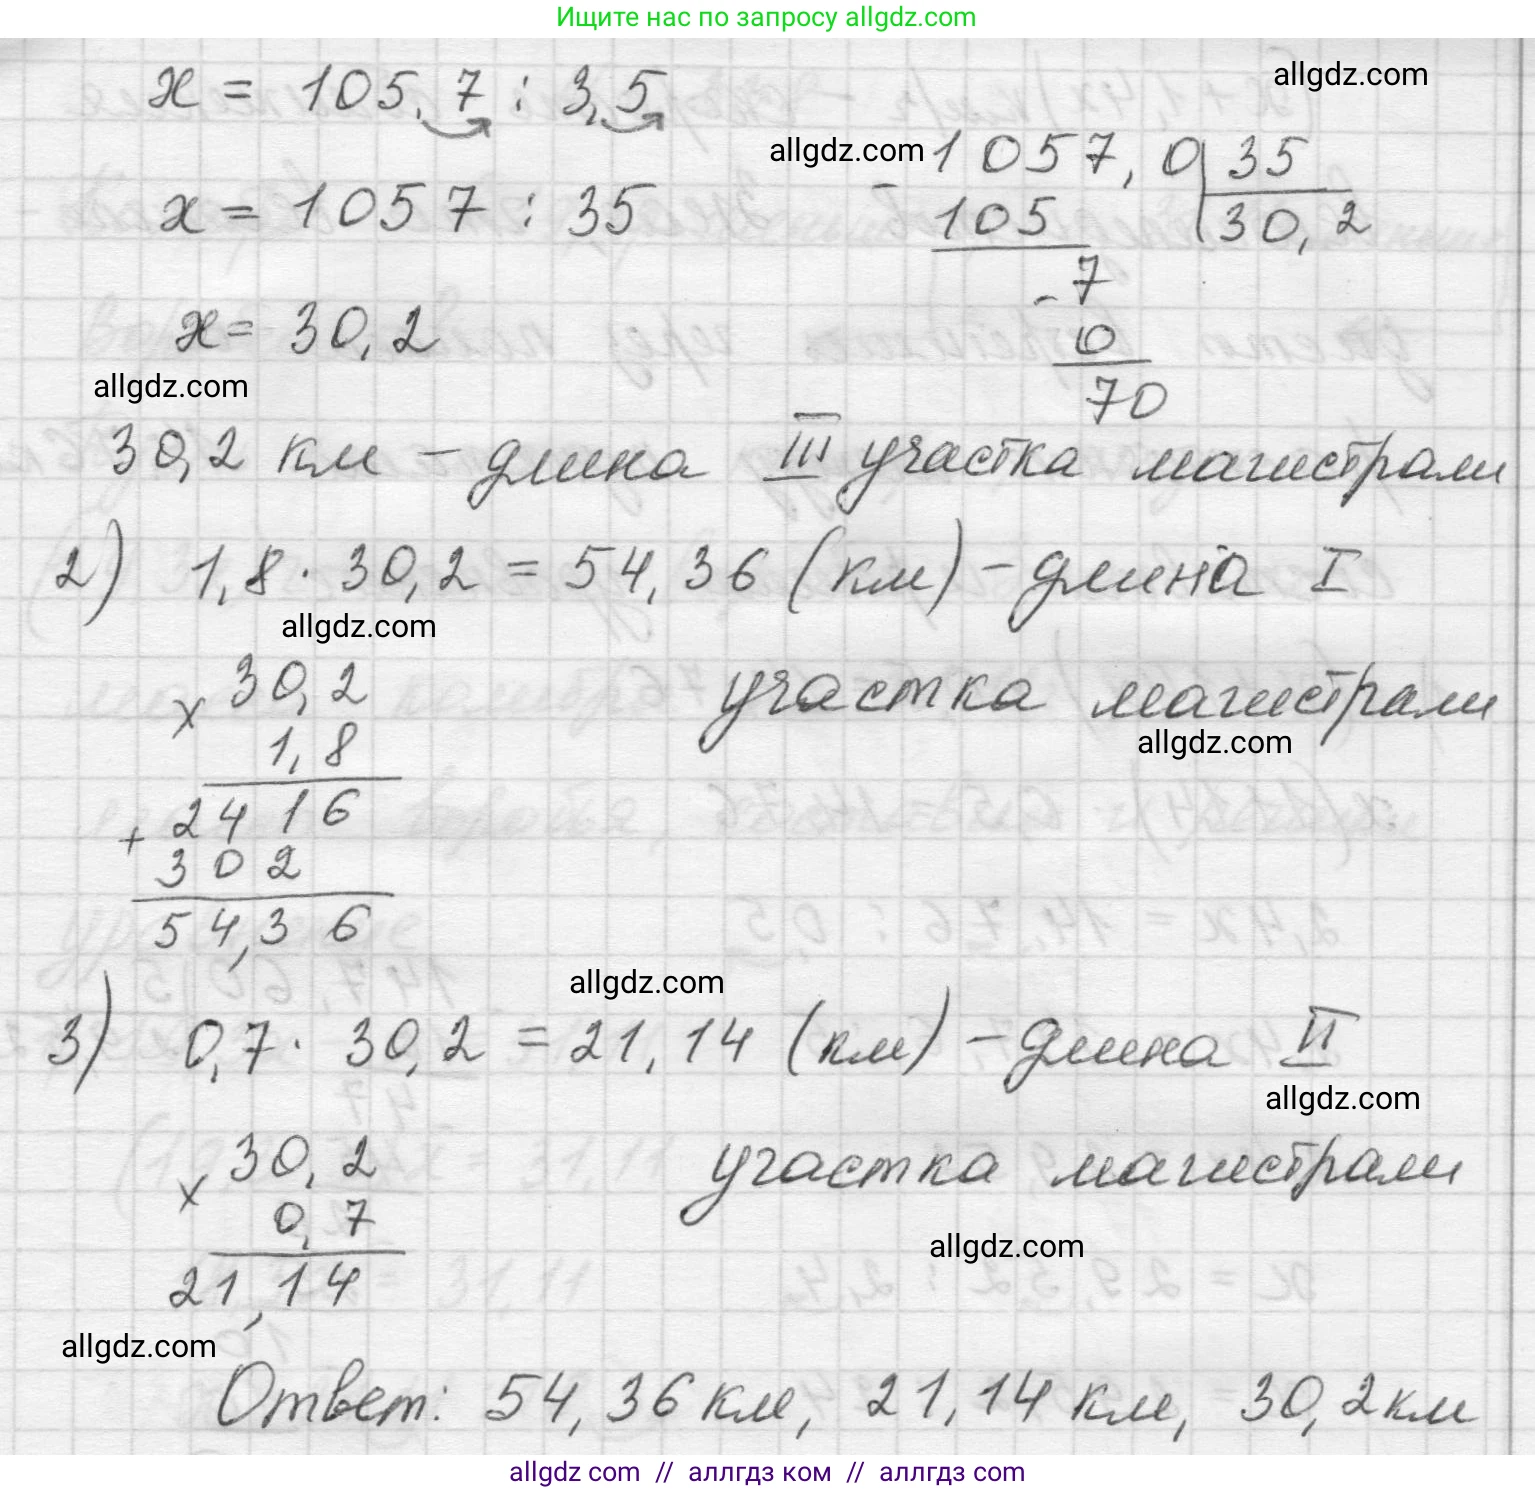 Ищите нас по запросу allgdz.com
allgdz.com
x = 105,7 : 3,5
allgdz.com
1057,0 | 35
x = 1057 : 35
- 105 | 30,2
7
x = 30,2
- 0
allgdz.com
70
30,2 км – длина III участка магистрали
2) 1,8 · 30,2 = 54,36 (км) – длина I
allgdz.com
участка магистрали
allgdz.com
× 30,2
1,8
+ 2416
302
54,36
allgdz.com
3) 0,7 · 30,2 = 21,14 (км) – длина II
allgdz.com
участка магистрали
× 30,2
0,7
allgdz.com
21,14
allgdz.com
Ответ: 54,36 км, 21,14 км, 30,2 км
allgdz com // аллгдз ком // аллгдз com